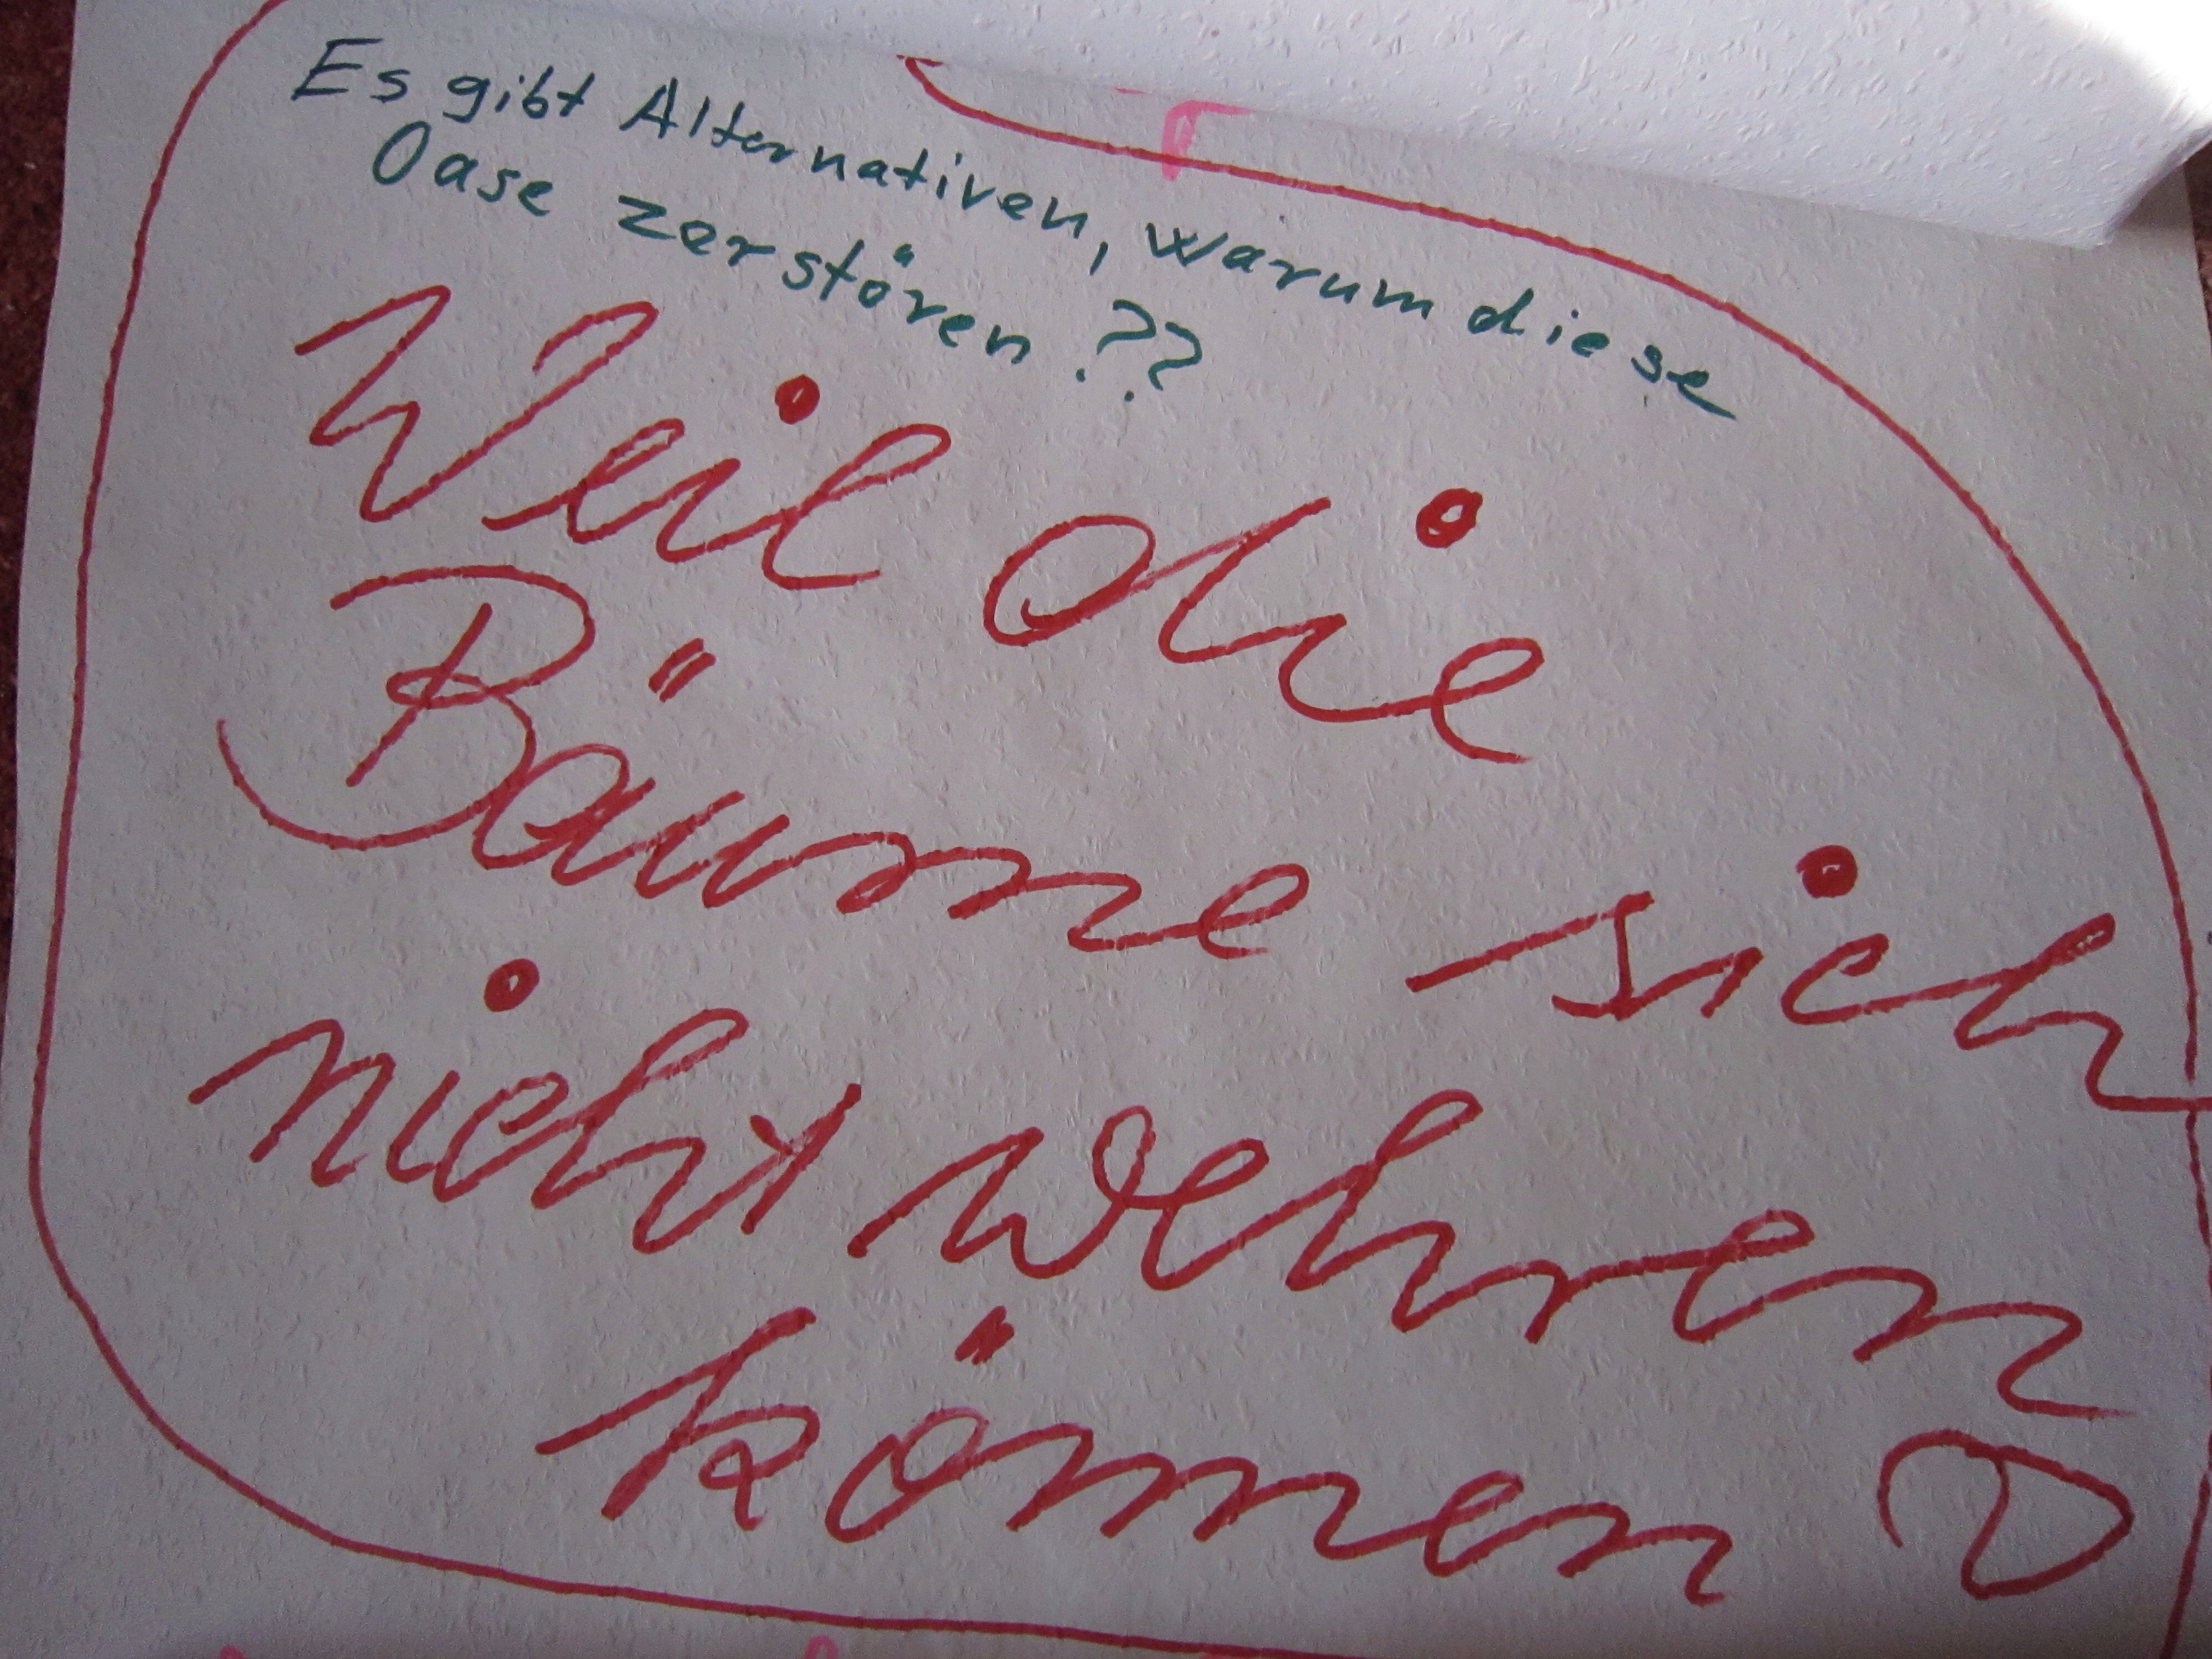 Es gibt Alternativen, warum diese
Oase zerstören ??
Weil die
Bäume sich
nicht wehren
können